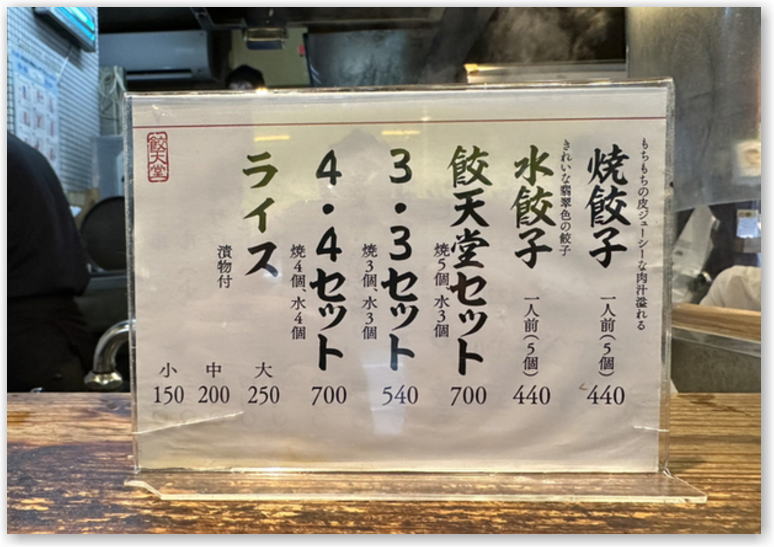 もちもちの皮ジューシーな肉汁溢れる
焼餃子
一人前(5個)
440
きれいな翡翠色の餃子
水餃子
一人前(5個)
440
餃天堂セット
焼5個、水3個
700
3・3セット
焼3個、水3個
540
4・4セット
焼4個、水4個
700
ライス
漬物付
大
250
中
200
小
150
餃天堂